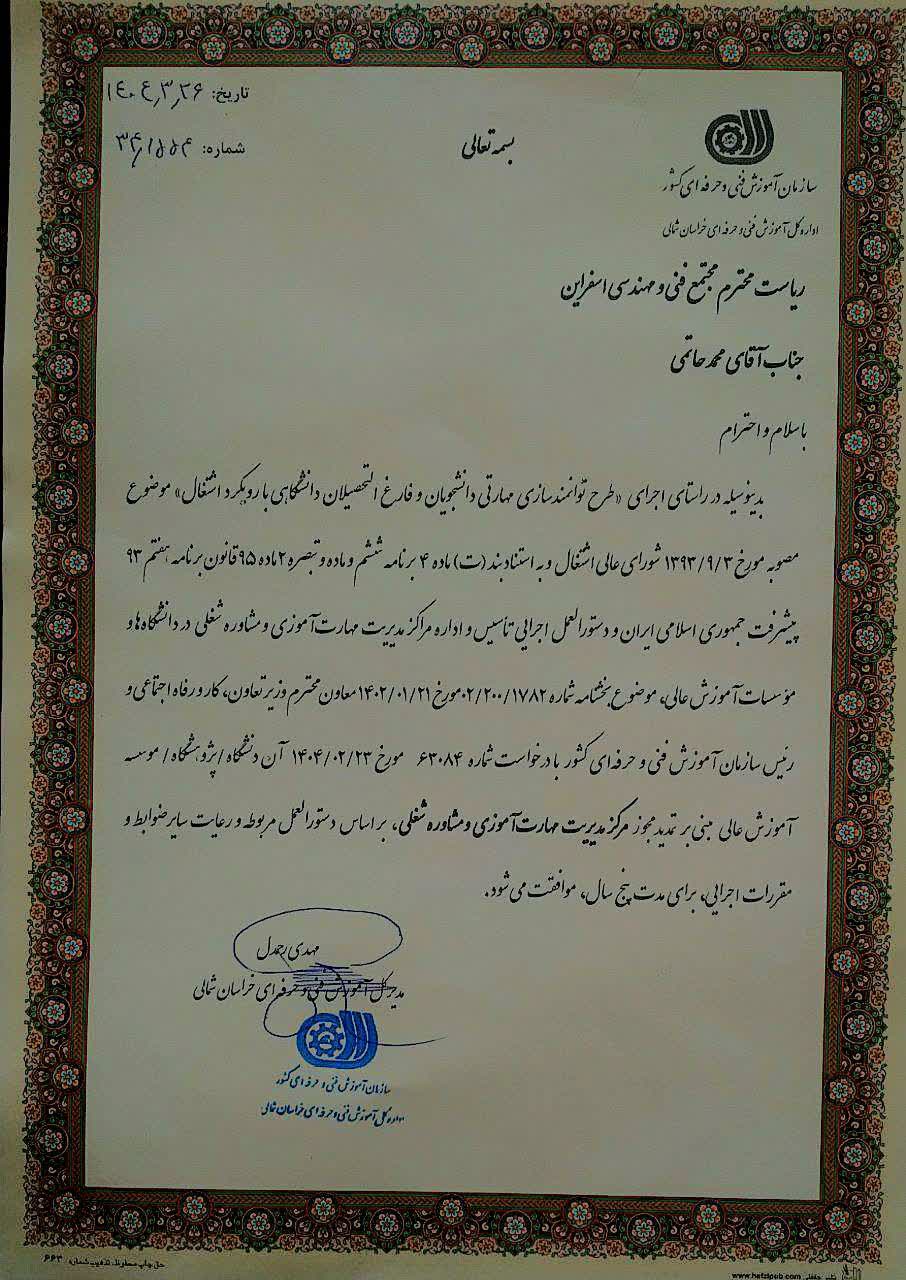 تاریخ: ۱۴۰۴,۳,۲۶
شماره:
بسمه تعالی
سازمان آموزش فنی و حرفه ای کشور
اداره کل آموزش فنی و حرفه ای خراسان شمالی
ریاست محترم مجتمع فنی و مهندسی اسفراین
جناب آقای محمد حاتمی
با سلام و احترام
بدینوسیله در راستای اجرای «طرح توانمندسازی مهارتی دانشجویان و فارغ التحصیلان دانشگاهی با رویکرد اشتغال» موضوع
مصوبه مورخ ۱۳۹۳/۹/۳ شورای عالی اشتغال و به استناد بند (ت) ماده ۴ برنامه ششم و ماده و تبصره ۲ ماده ۹۵ قانون برنامه هفتم ۹۳
پیشرفت جمهوری اسلامی ایران و دستورالعمل اجرایی تأسیس و اداره مراکز مدیریت مهارت آموزی و مشاوره شغلی در دانشگاه ها و
مؤسسات آموزش عالی، موضوع بخشنامه شماره ۰۲/۲۰۰/۱۷۸۲ مورخ ۱۴۰۲/۰۱/۲۱ معاون محترم وزیر تعاون، کار و رفاه اجتماعی و
رئیس سازمان آموزش فنی و حرفه ای کشور با درخواست شماره ۶۳۰۸۴ مورخ ۱۴۰۴/۰۲/۲۳ آن دانشگاه / پژوهشگاه / موسسه
آموزش عالی مبنی بر تمدید مجوز مرکز مدیریت مهارت آموزی و مشاوره شغلی، بر اساس دستورالعمل مربوطه و رعایت سایر ضوابط و
مقررات اجرایی، برای مدت پنج سال، موافقت می شود.
مهدی رحمدل
مدیرکل آموزش فنی و حرفه ای خراسان شمالی
سازمان آموزش فنی و حرفه ای کشور
اداره کل آموزش فنی و حرفه ای خراسان شمالی
حق چاپ محفوظ. تذهیب شماره: ۶۶۳
www.hafzipub.com